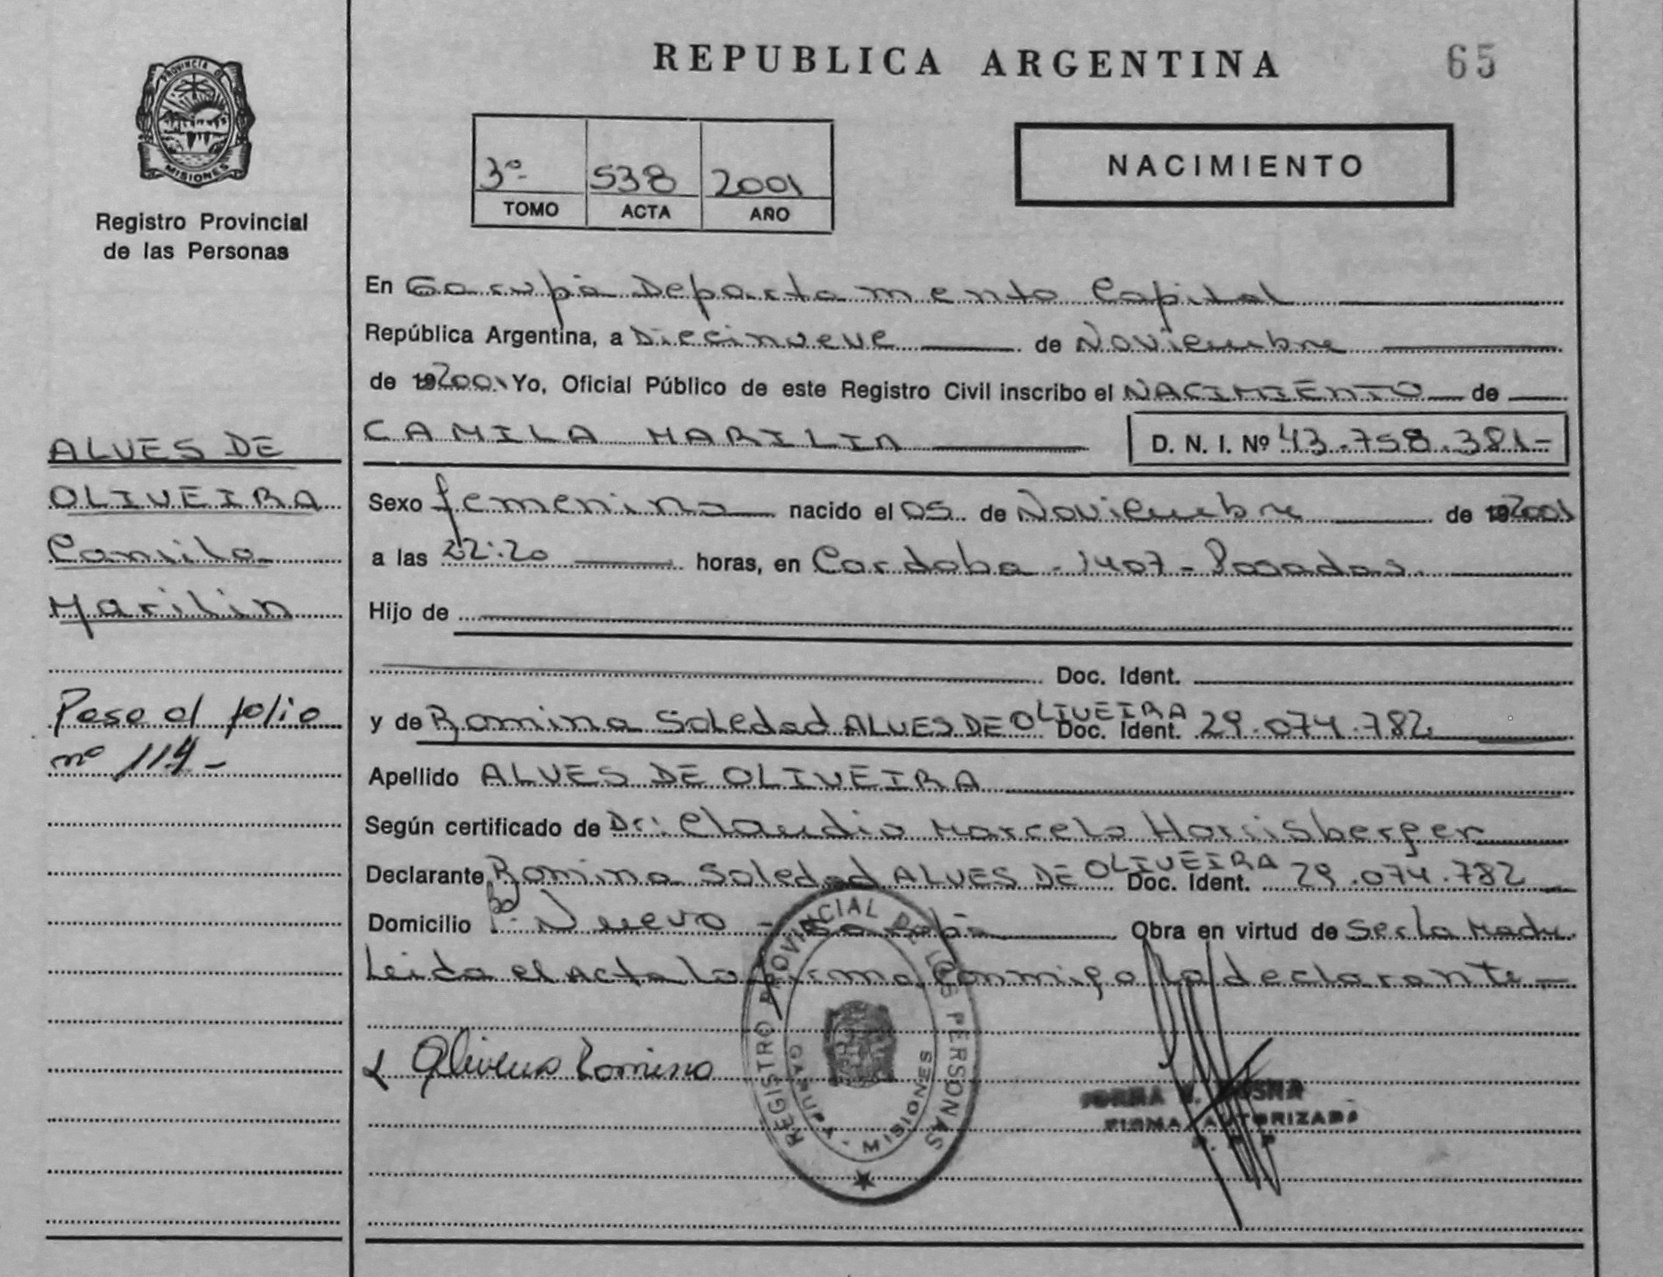 REPUBLICA ARGENTINA
65
PROVINCIA D
MISIONES
Registro Provincial
de las Personas
3º
538
2001
TOMO
ACTA
AÑO
NACIMIENTO
En Garupá Departamento Capital
República Argentina, a Diecinueve de Noviembre
de 192001 Yo, Oficial Público de este Registro Civil inscribo el NACIMIENTO de
CAMILA MARILIN
D. N. I. Nº 43.758.381=
ALVES DE
OLIVEIRA
Camila
Marilin
Pase al folio
nº 114-
Sexo femenino nacido el 05 de Noviembre de 192001
a las 22:20 horas, en Cordoba - 1407 - Posadas.
Hijo de
Doc. Ident.
y de Romina Soledad ALVES DE OLIVEIRA Doc. Ident. 29.074.782
Apellido ALVES DE OLIVEIRA
Según certificado de Dr: Claudio Marcelo Horrisberger
Declarante Romina Soledad ALVES DE OLIVEIRA Doc. Ident. 29.074.782
Domicilio Bº Nuevo - Garupá Obra en virtud de ser la Madre
Leida el Acta la firma conmigo la declarante -
Romina
REGISTRO PROVINCIAL DE LAS PERSONAS
GARUPA - MISIONES
FIRMA AUTORIZADA